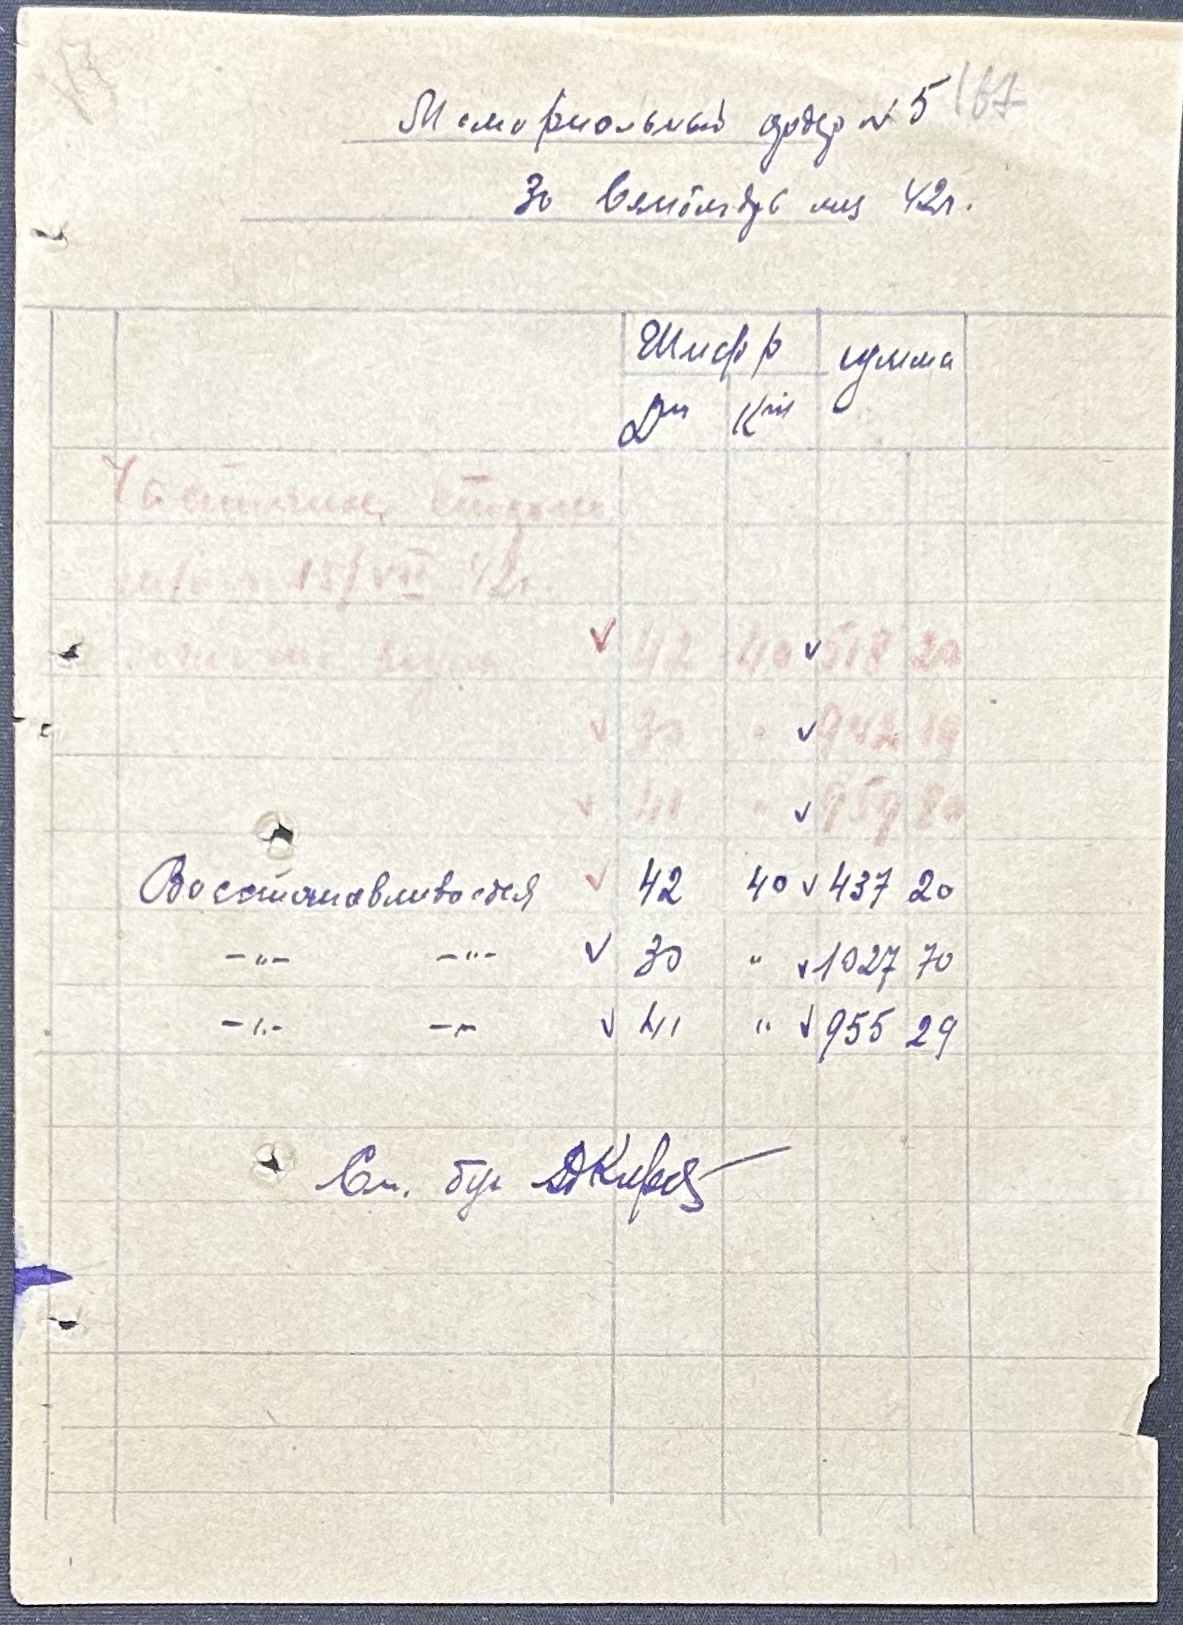 Мемориальный ордер № 5 167
За Сентябрь м-ц 42г.
Шифр сумма
Дт Кт
Частично сторно
15/VII 42г.
42 40 518 20
30 " 942 19
41 " 959 80
Восстанавливается 42 40 437 20
-"- -"- 30 " 1027 70
-"- -"- 41 " 955 29
Ст. бух.